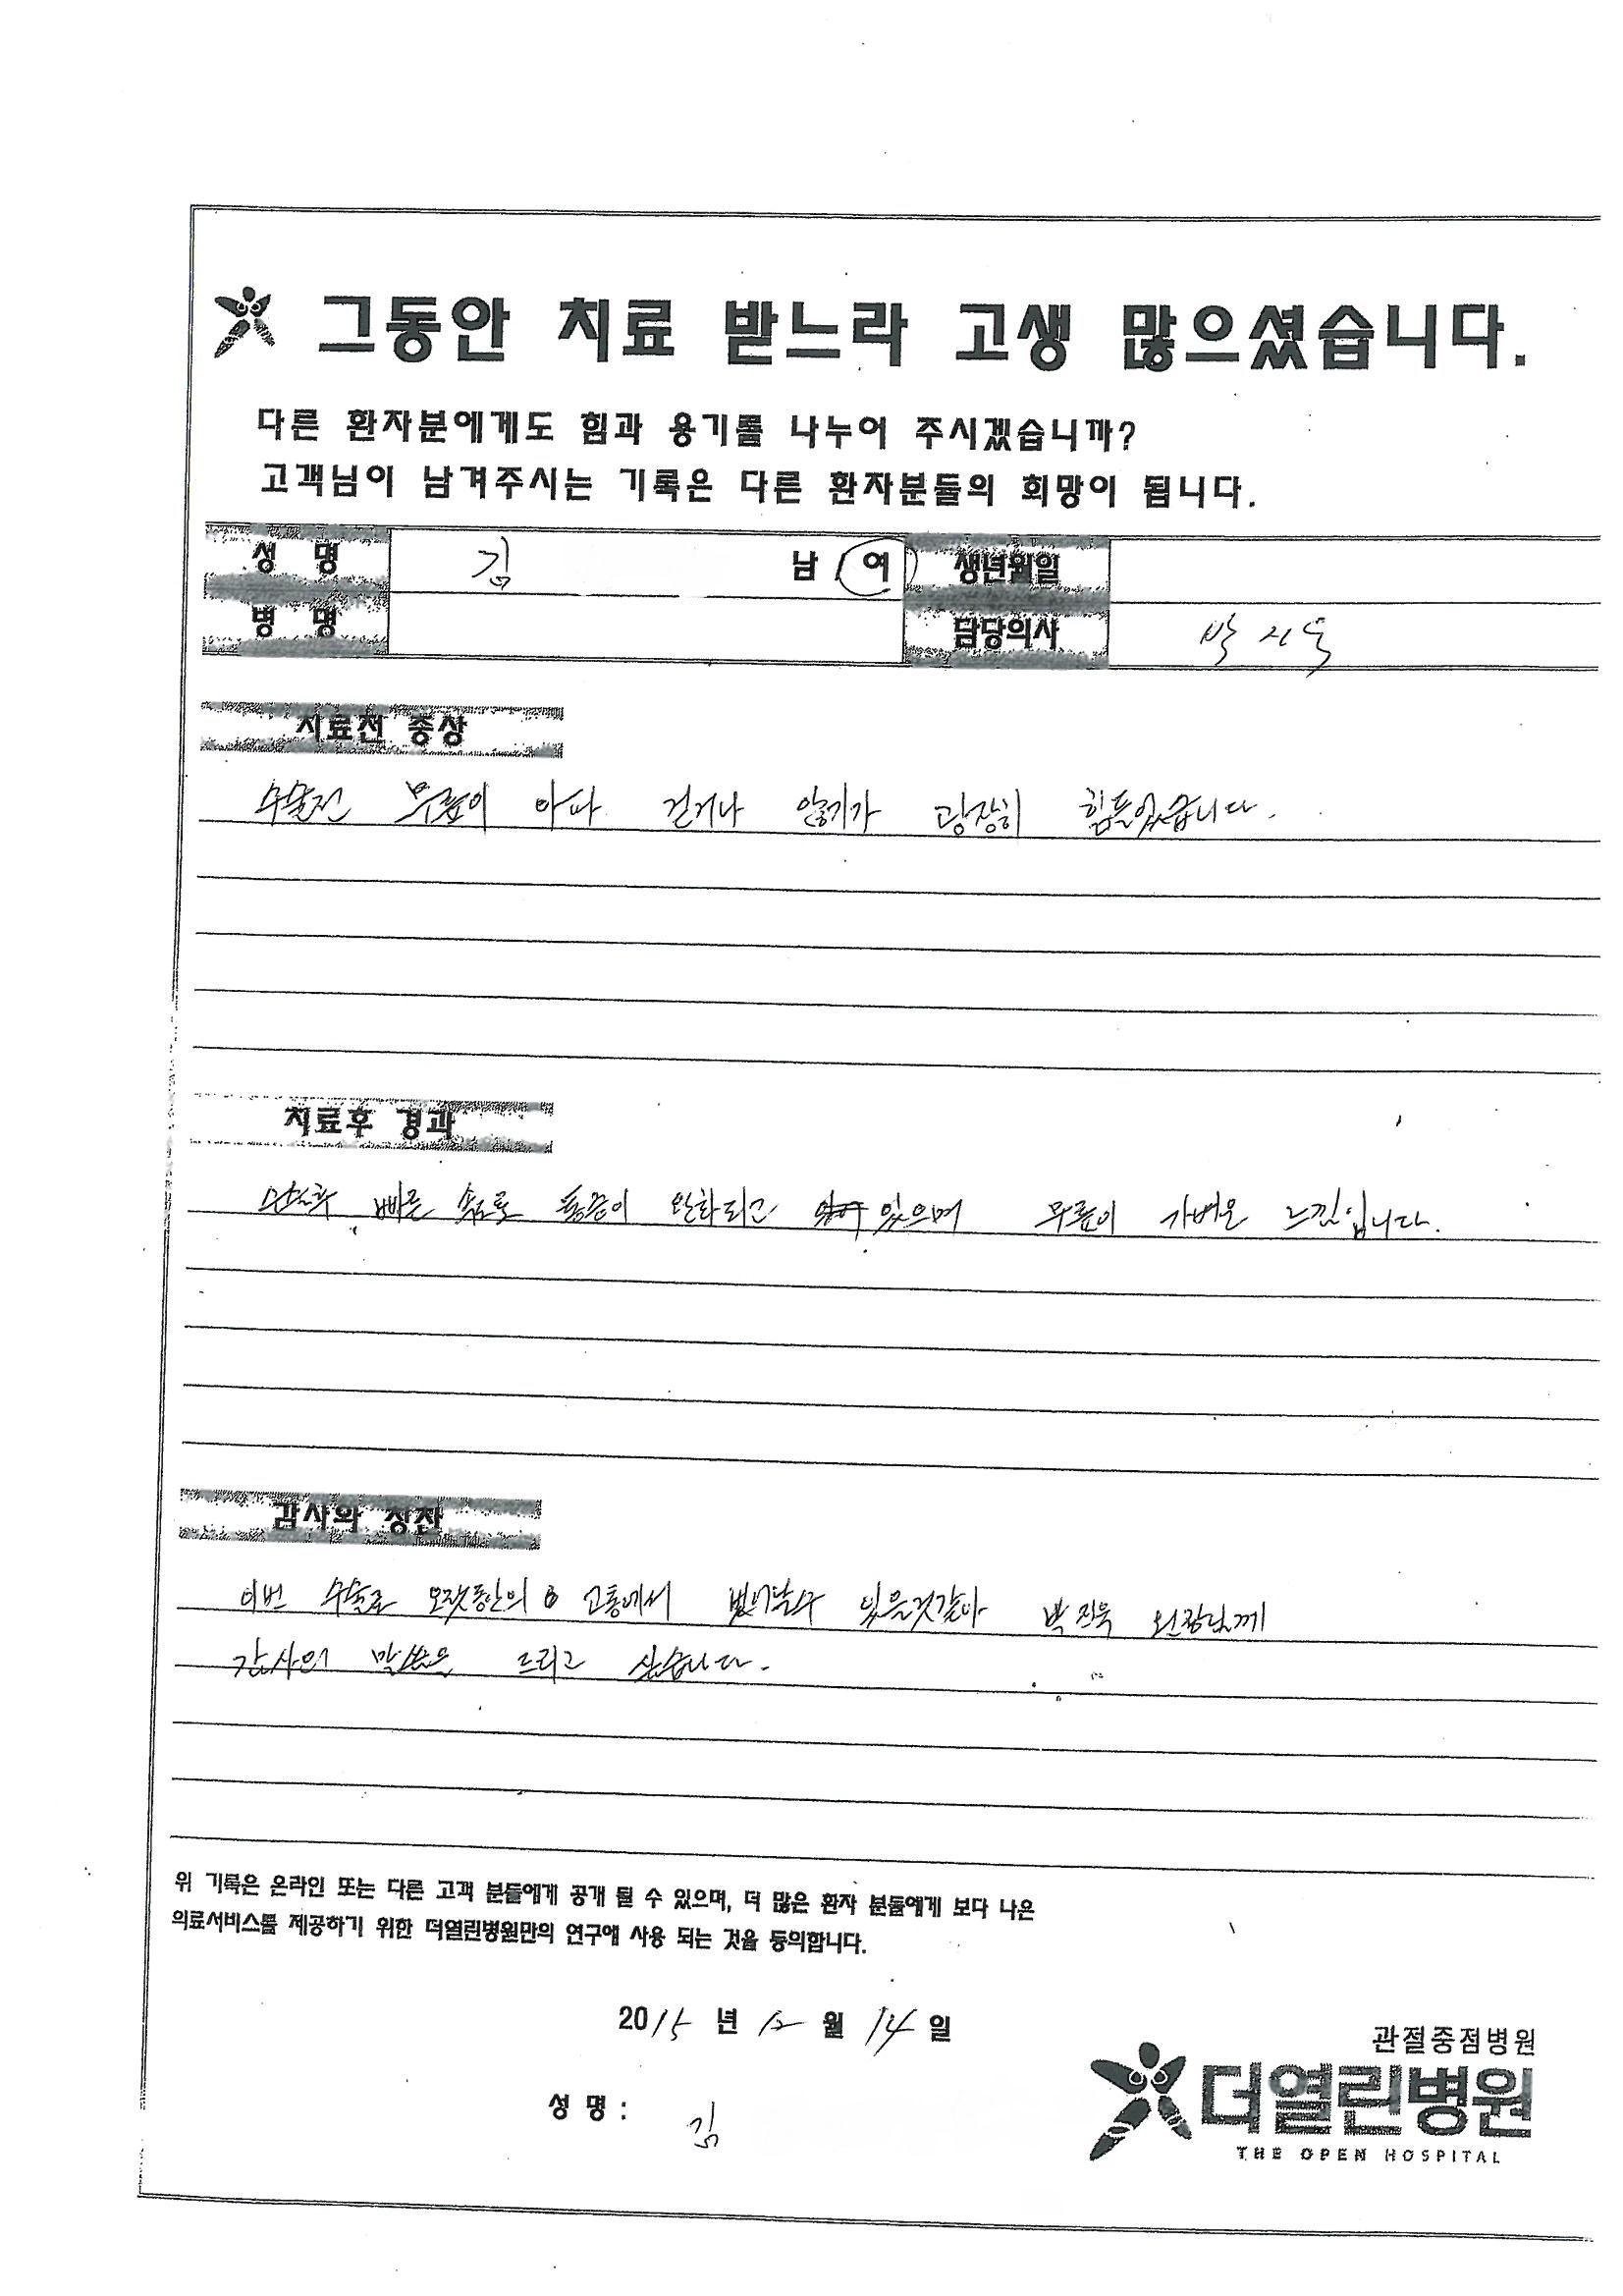 그동안 치료 받느라 고생 많으셨습니다.
다른 환자분에게도 힘과 용기를 나누어 주시겠습니까?
고객님이 남겨주시는 기록은 다른 환자분들의 희망이 됩니다.
성 명 김 남 / 여 생년월일
병 명 담당의사 박지욱
치료전 증상
수술전 무릎이 아파 걷거나 앉기가 굉장히 힘들었습니다.
치료후 경과
빠른 속도로 통증이 완화되고 있으며 무릎이 가벼운 느낌입니다.
감사와 칭찬
이번 수술로 오랫동안의 고통에서 벗어날수 있을것같아 박지욱 원장님께
감사의 말씀을 드리고 싶습니다.
위 기록은 온라인 또는 다른 고객 분들에게 공개 될 수 있으며, 더 많은 환자 분들에게 보다 나은
의료서비스를 제공하기 위한 더열린병원만의 연구에 사용 되는 것을 동의합니다.
2015 년 12 월 14 일
성 명 : 김
관절중점병원
더열린병원
THE OPEN HOSPITAL